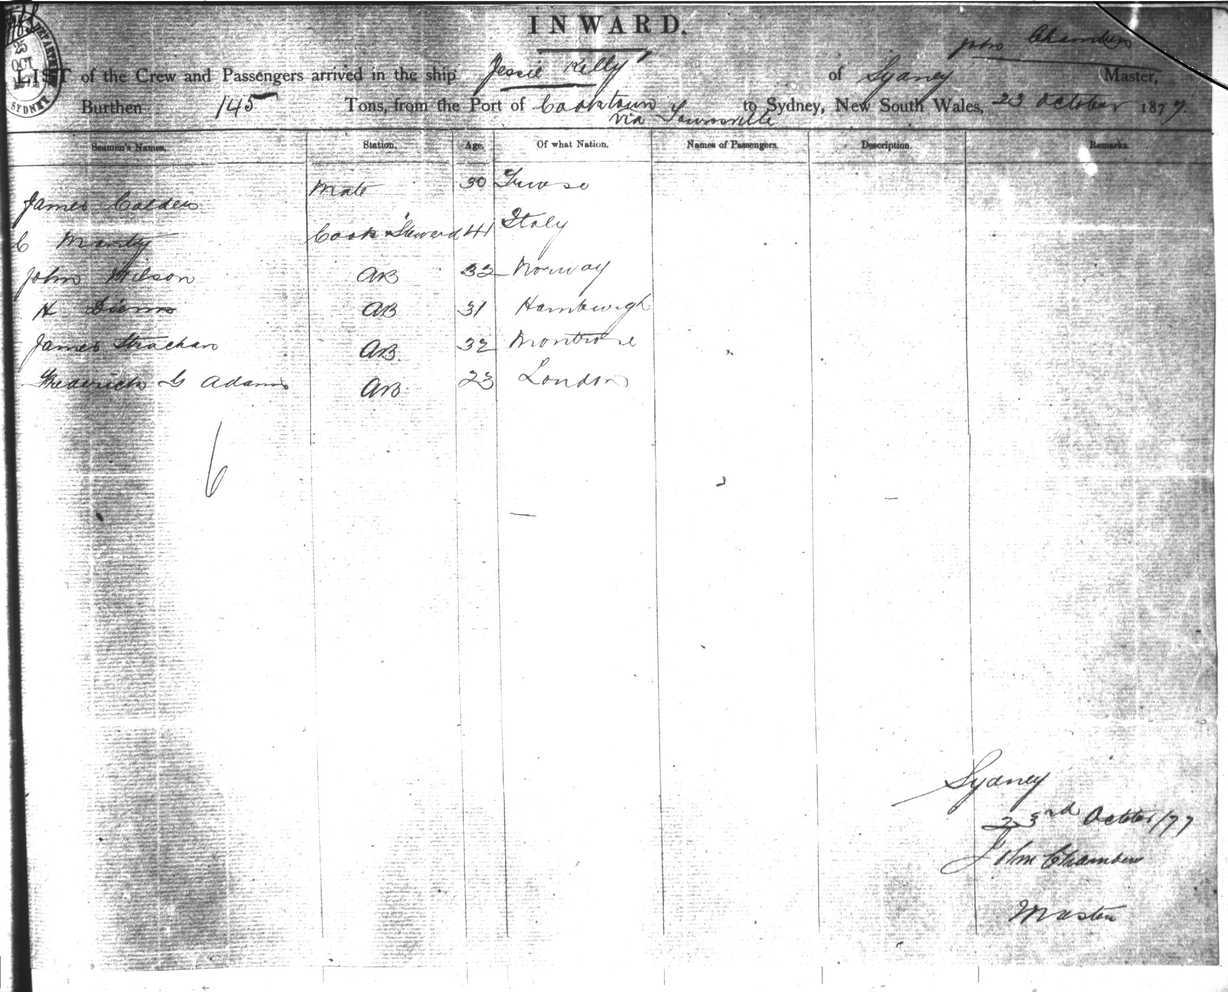 INWARD.
John Chambers
LIST of the Crew and Passengers arrived in the ship Jessie Kelly of Sydney Master,
Burthen 145 Tons, from the Port of Cooktown to Sydney, New South Wales, 23 October 1877
via Townsville
Seamen's Names. Station. Age. Of what Nation. Names of Passengers. Description. Remarks.
James Calder Mate 30
C Cook & Steward 41 Italy
John Wilson AB 32 Norway
H AB 31 Hamburgh
James Strachan AB 32 Montrose
Frederick G Adams AB 23 London
6
Sydney
23rd October/77
John Chambers
Master
25
OCT
SYDNEY